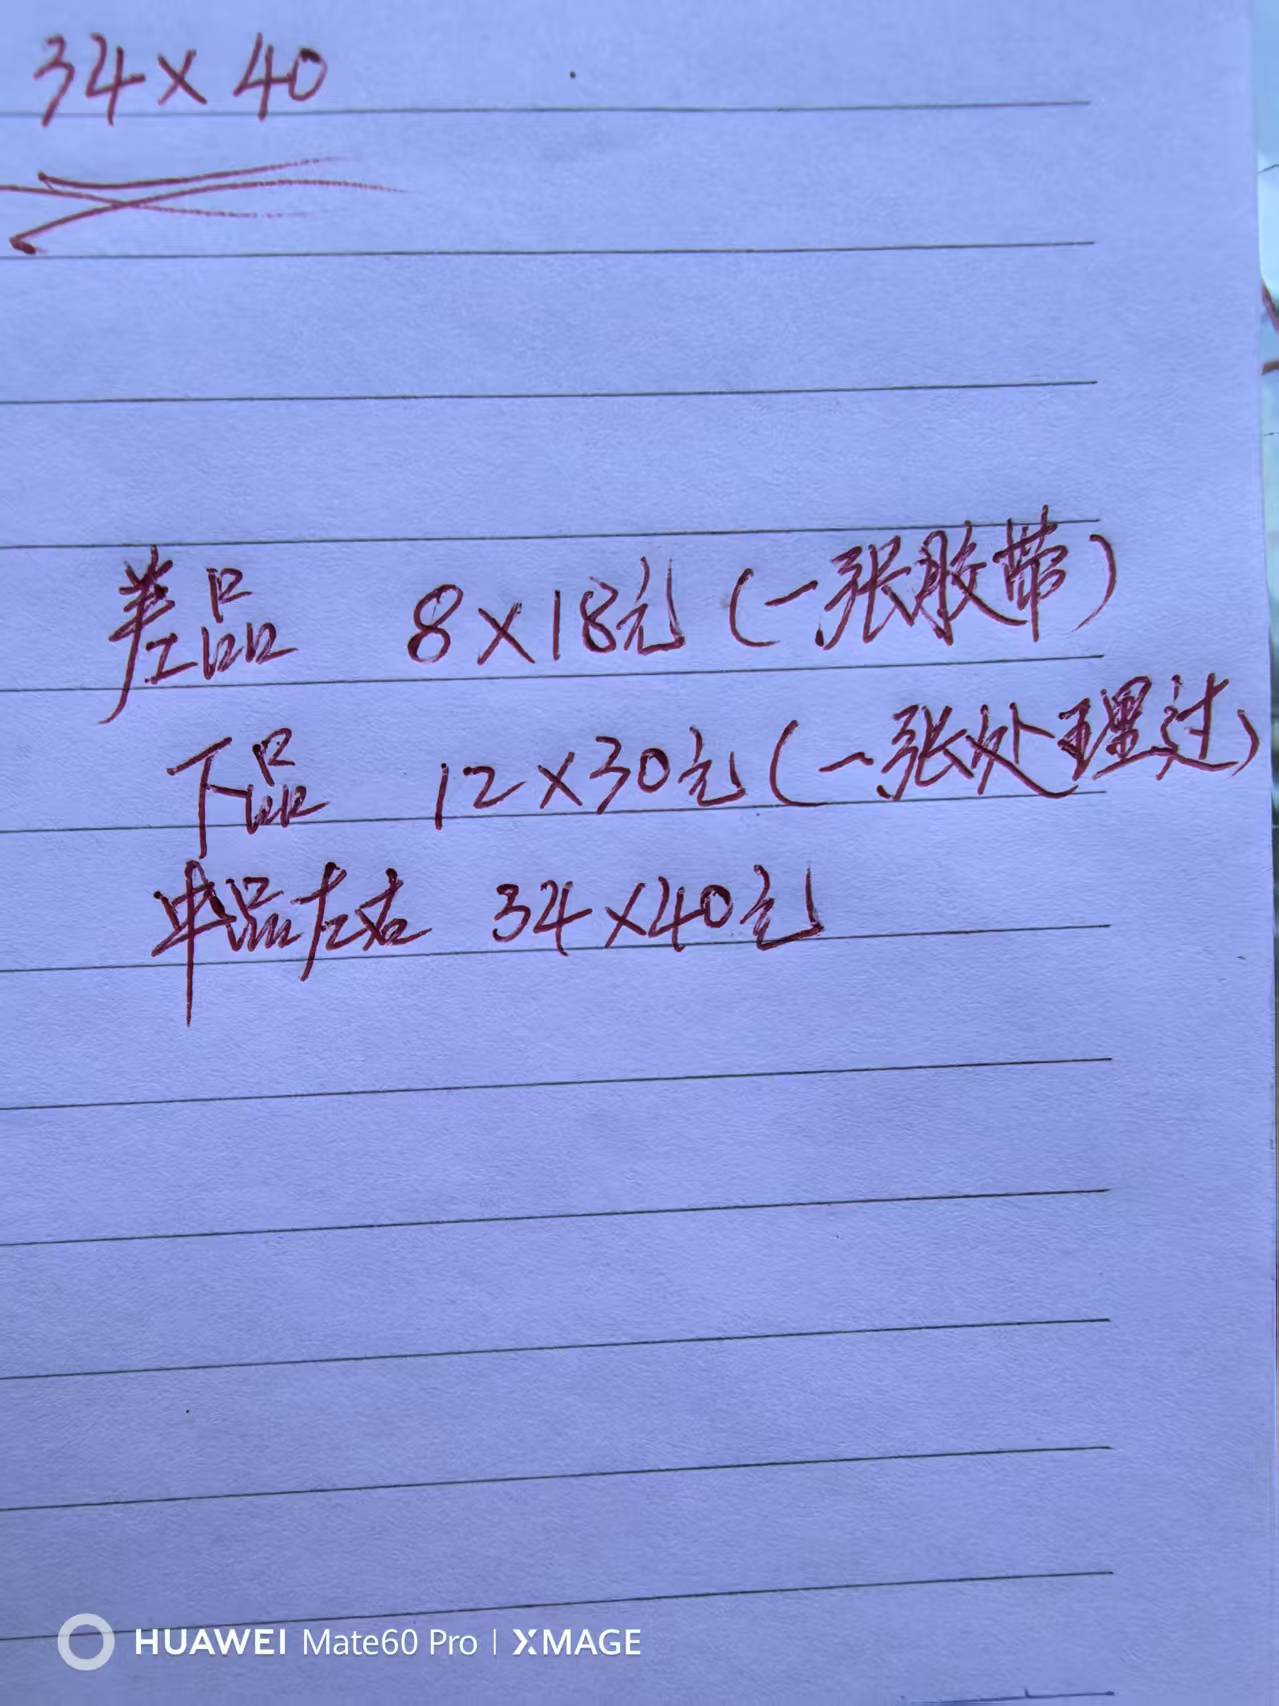 34×40
差品 8×18元(一张胶带)
下品 12×30元(一张处理过)
中品左右 34×40元
HUAWEI Mate60 Pro | XMAGE